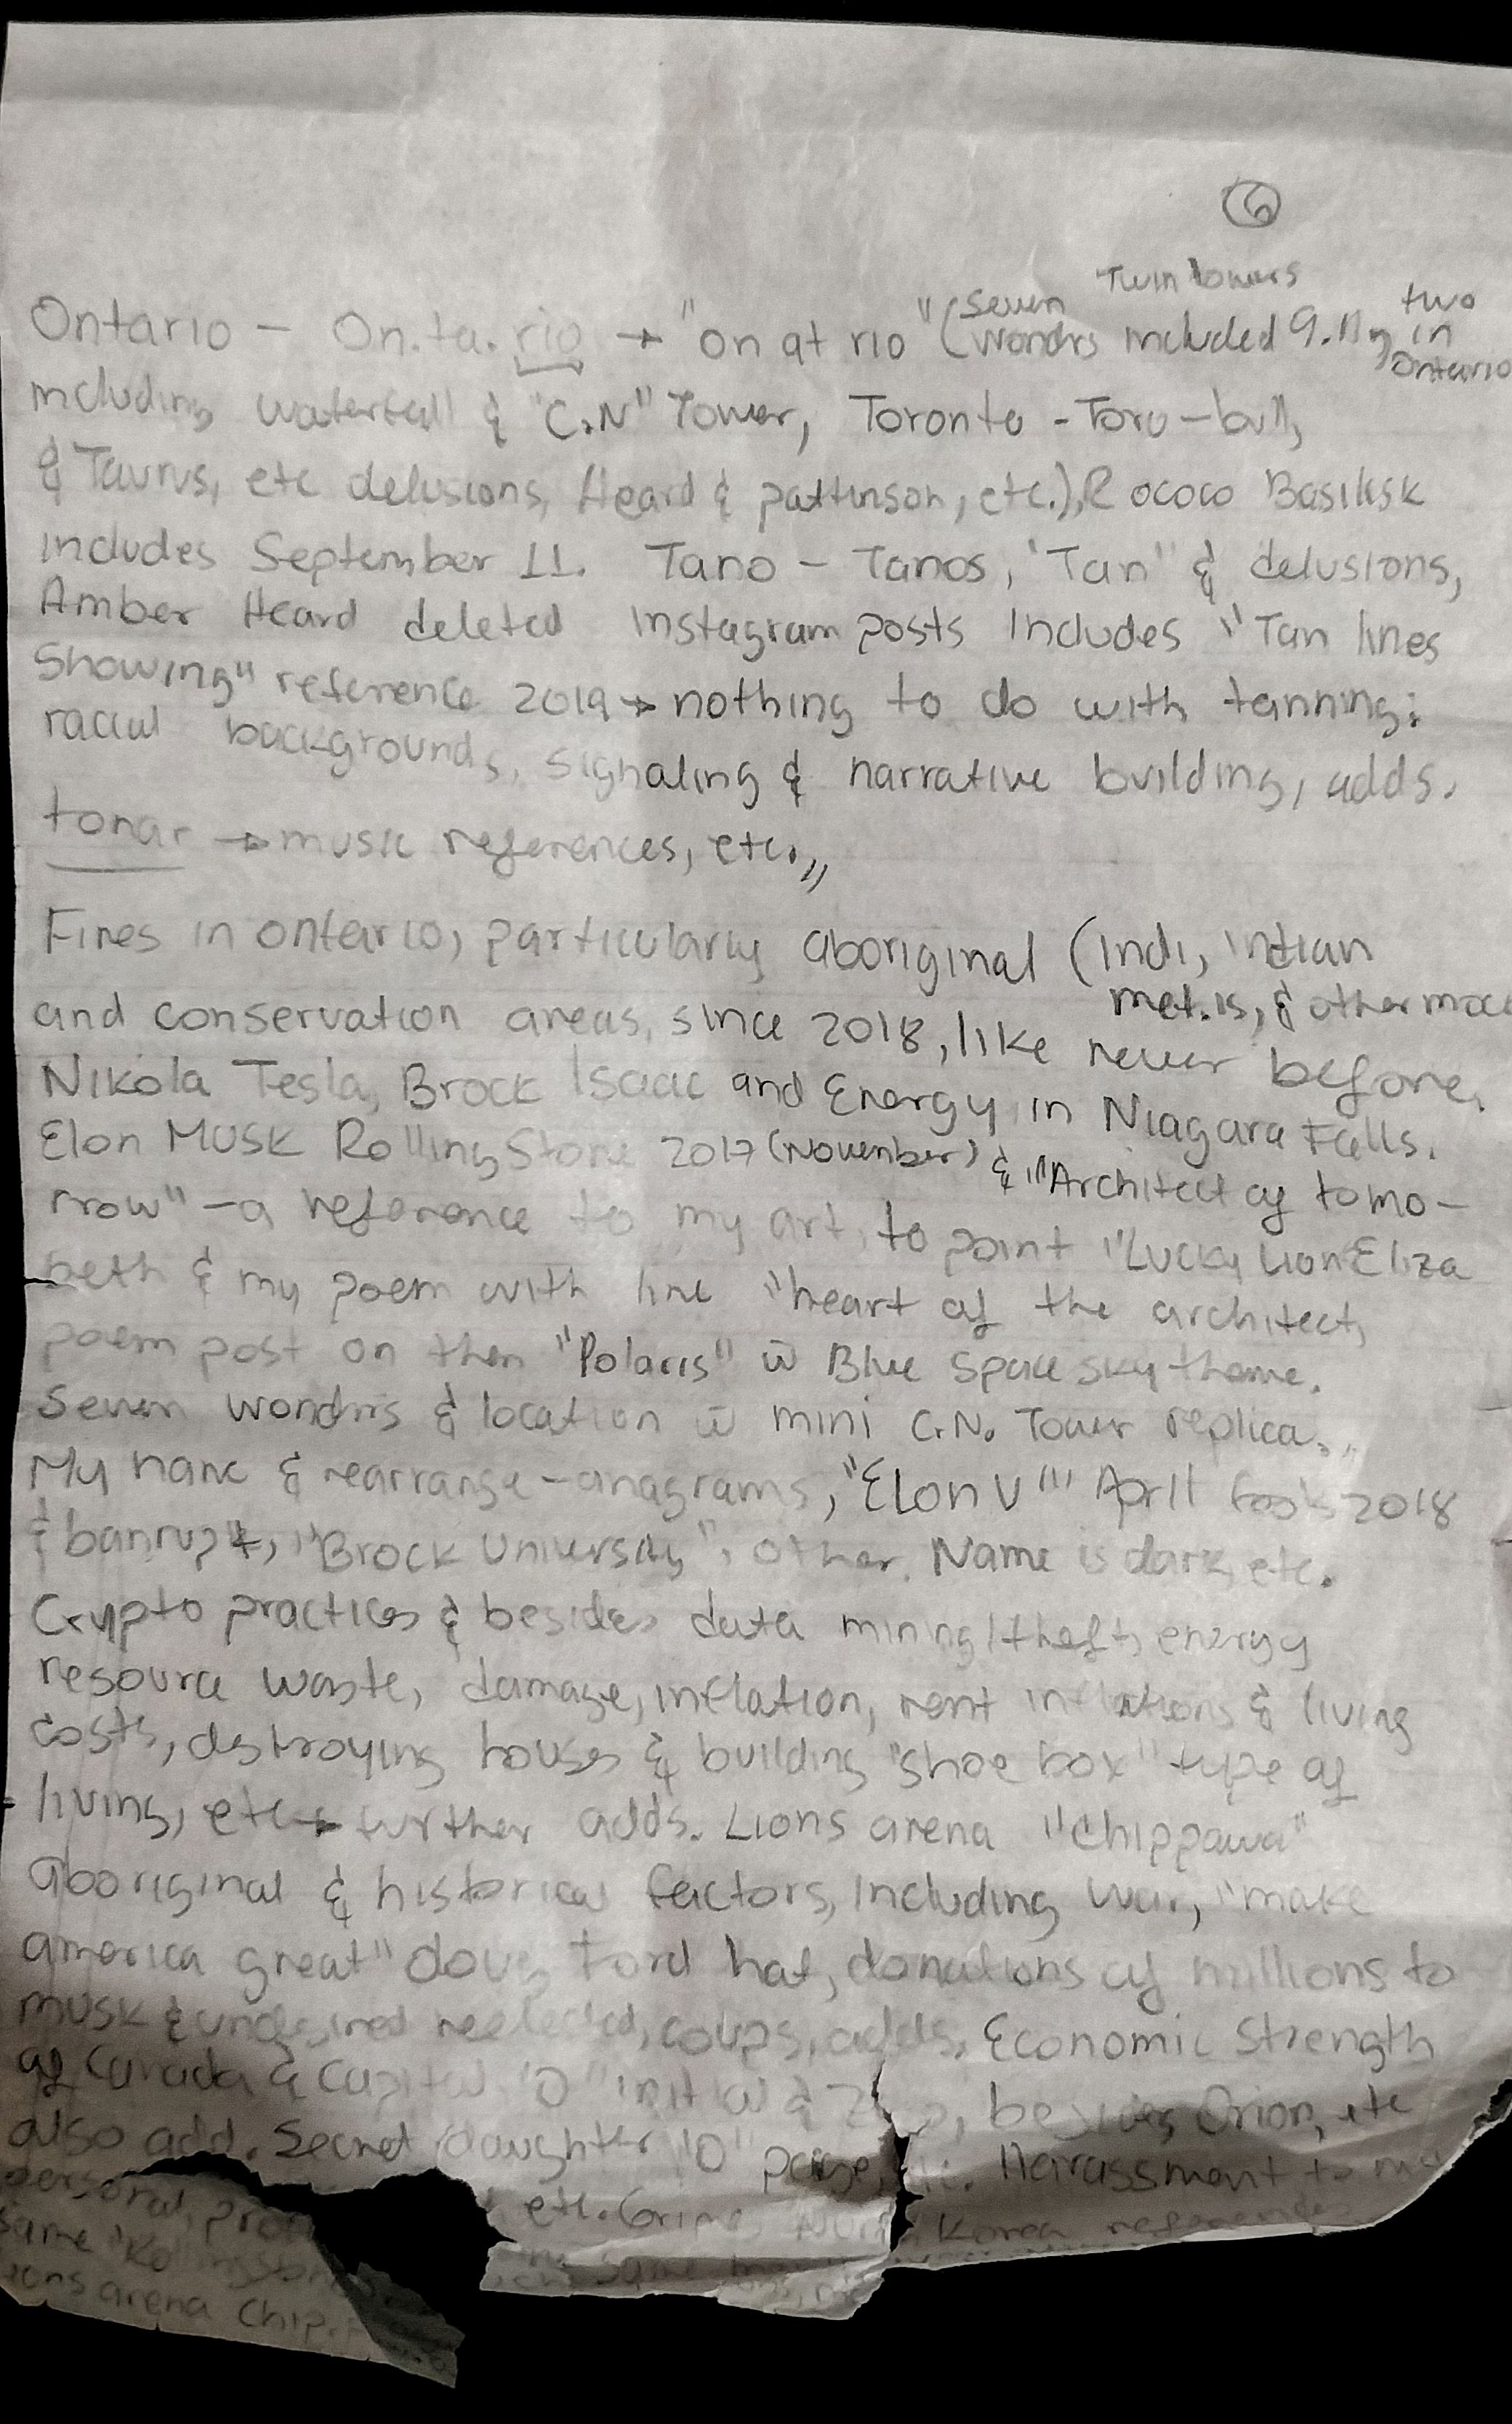 6
Twin towers
Ontario – On.ta.rio → "on at rio" (seven wondrs included 9.11, two in Ontario
including waterfall & "C.N" Tower, Toronto - Toro – bull,
& Taurus, etc delusions, Heard & pattinson, etc.), Rococo Basilisk
includes September 11. Tano – Tanos, "Tan" & delusions,
Amber Heard deleted instagram posts includes "Tan lines
Showing" reference 2019 → nothing to do with tanning;
racial backgrounds, signaling & narrative building, adds.
tonar → music references, etc.,,
Fires in ontario, particularly aboriginal (indi, indian
met.is, & other mock
and conservation areas, since 2018, like never before.
Nikola Tesla, Brock Isaac and Energy in Niagara Falls.
Elon Musk Rolling Stone 2017 (November) & "Architect of tomo-
rrow" – a reference to my art, to point "Lucky Lion Eliza
beth & my poem with line "heart of the architect,
poem post on then "Polaris" w Blue space sky theme.
Seven wondrs & location w mini C.N. Tower replica.,,
My name & rearrange – anagrams, "Elon V''' April fools 2018
& bankrupt, "Brock University", other. Name is dark, etc.
Crypto practices & besides data mining/theft, energy
resource waste, damage, inflation, rent inflations & living
costs, destroying houses & building "shoe box" type of
living, etc → further adds. Lions arena "Chippawa"
aboriginal & historical factors, including war, "make
america great" doug ford hat, donations of millions to
musk & undesired neglected, coups, adds. Economic Strength
of Canada & Capital, "O" initial & besides Orion, etc
also add. Secret daughter "O" page, etc. Harassment to my
personal, etc. Grimes North Korea reference
same "Ko" same
ions arena Chip.